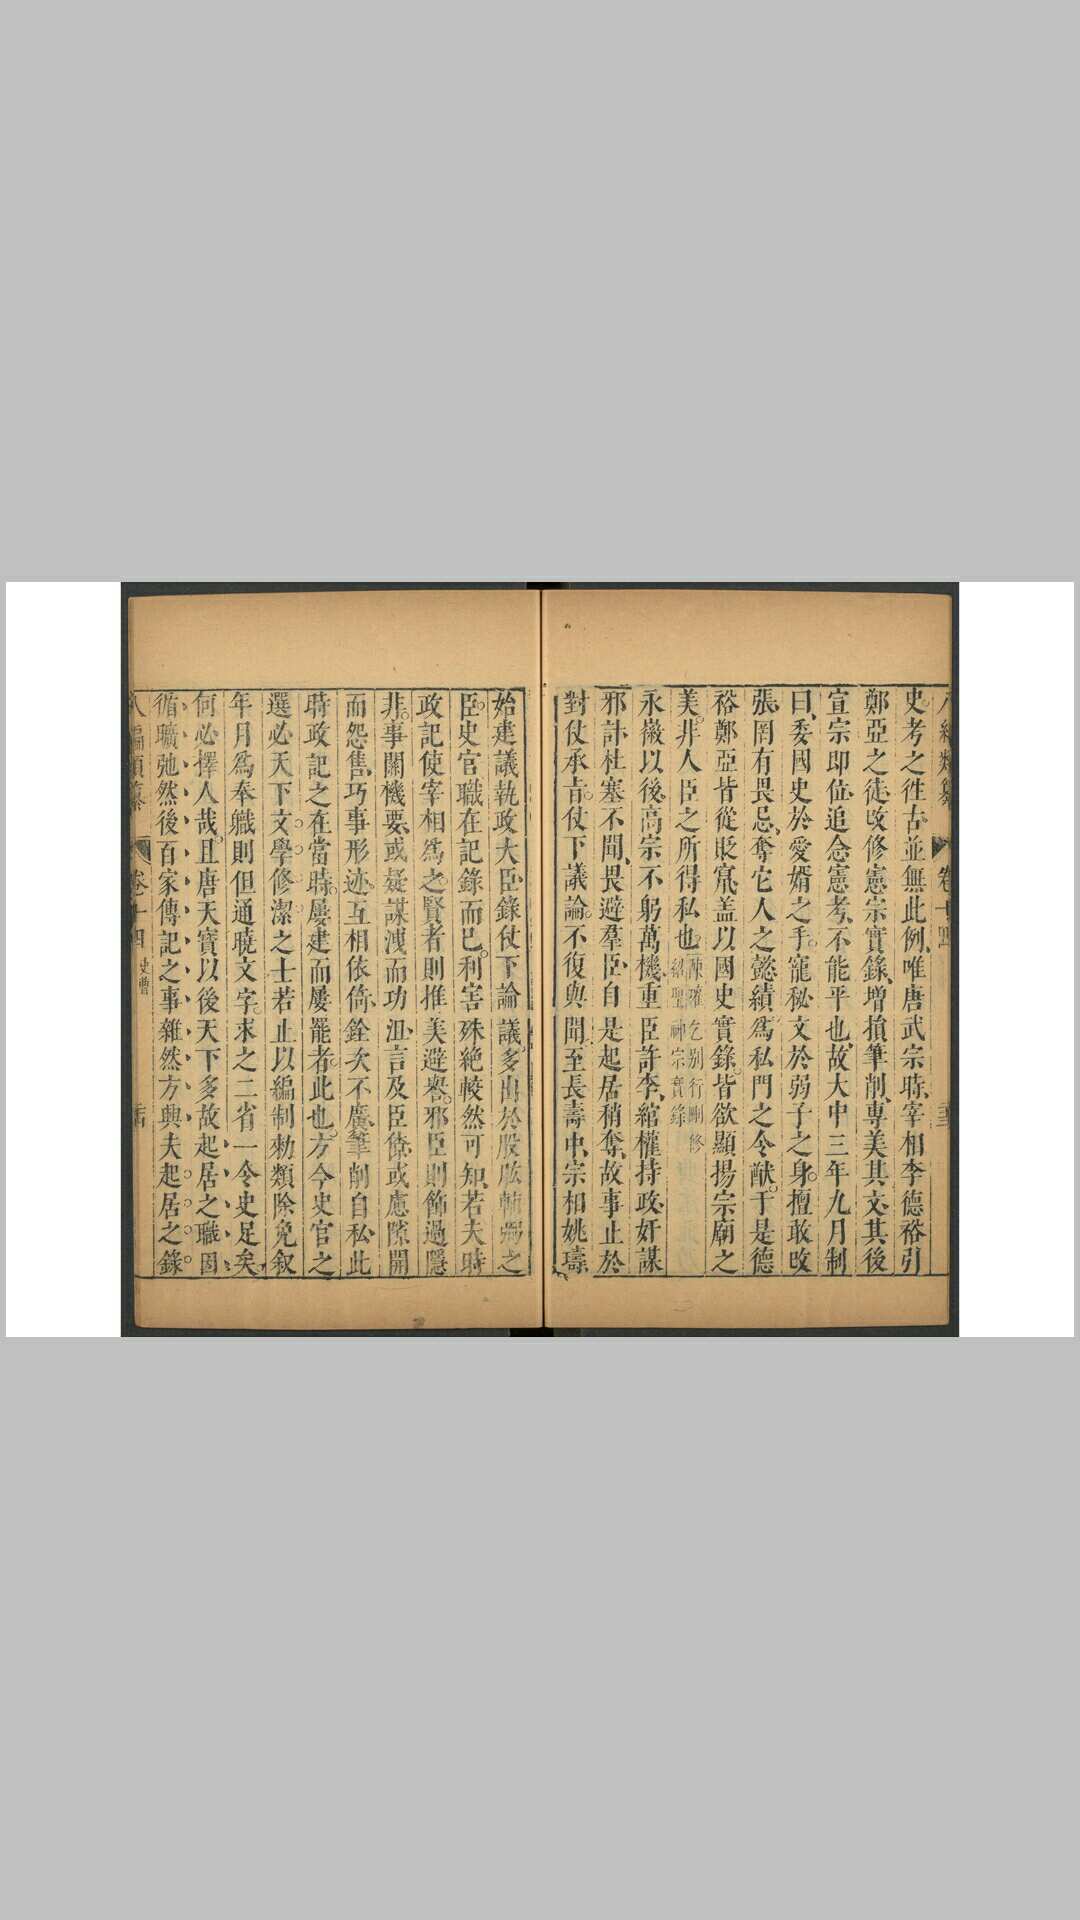 史考之徃古並無此例唯唐武宗時宰相李德裕引
鄭亞之徒攺修憲宗實錄增損筆削專美其文其後
宣宗即位追念憲考不能平也故大中三年九月制
曰委國史於愛婿之手寵秘文於弱子之身擅敢攺
張罔有畏忌奪它人之懿績爲私門之令猷于是德
裕鄭亞皆從貶竄盖以國史實錄皆欲顯揚宗廟之
美非人臣之所得私也陳瓘乞別行刪修
紹聖神宗實錄
永徽以後高宗不躬萬機重臣許李綰權持政奸謀
邪計杜塞不聞畏避羣臣自是起居稍奪故事止於
對仗承㫖仗下議論不復與聞至長壽中宗相姚璹
始建議執政大臣錄仗下論議多出於股肱輔弼之
臣史官職在記錄而已利害殊絶較然可知若夫時
政記使宰相爲之賢者則推美避譽邪臣則飾過隱
非事關機要或疑謀洩而功沮言及臣僚或慮隙開
而怨售巧事形迹互相依倚銓次不廣筆削自私此
時政記之在當時屢建而屢罷者此也方今史官之
選必天下文學修潔之士若止以編制勅類除免叙
年月爲奉職則但通曉文字求之二省一令史足矣
何必擇人哉且唐天寳以後天下多故起居之職因
循曠弛然後百家傳記之事雜然方興夫起居之錄
八編類纂 卷十四